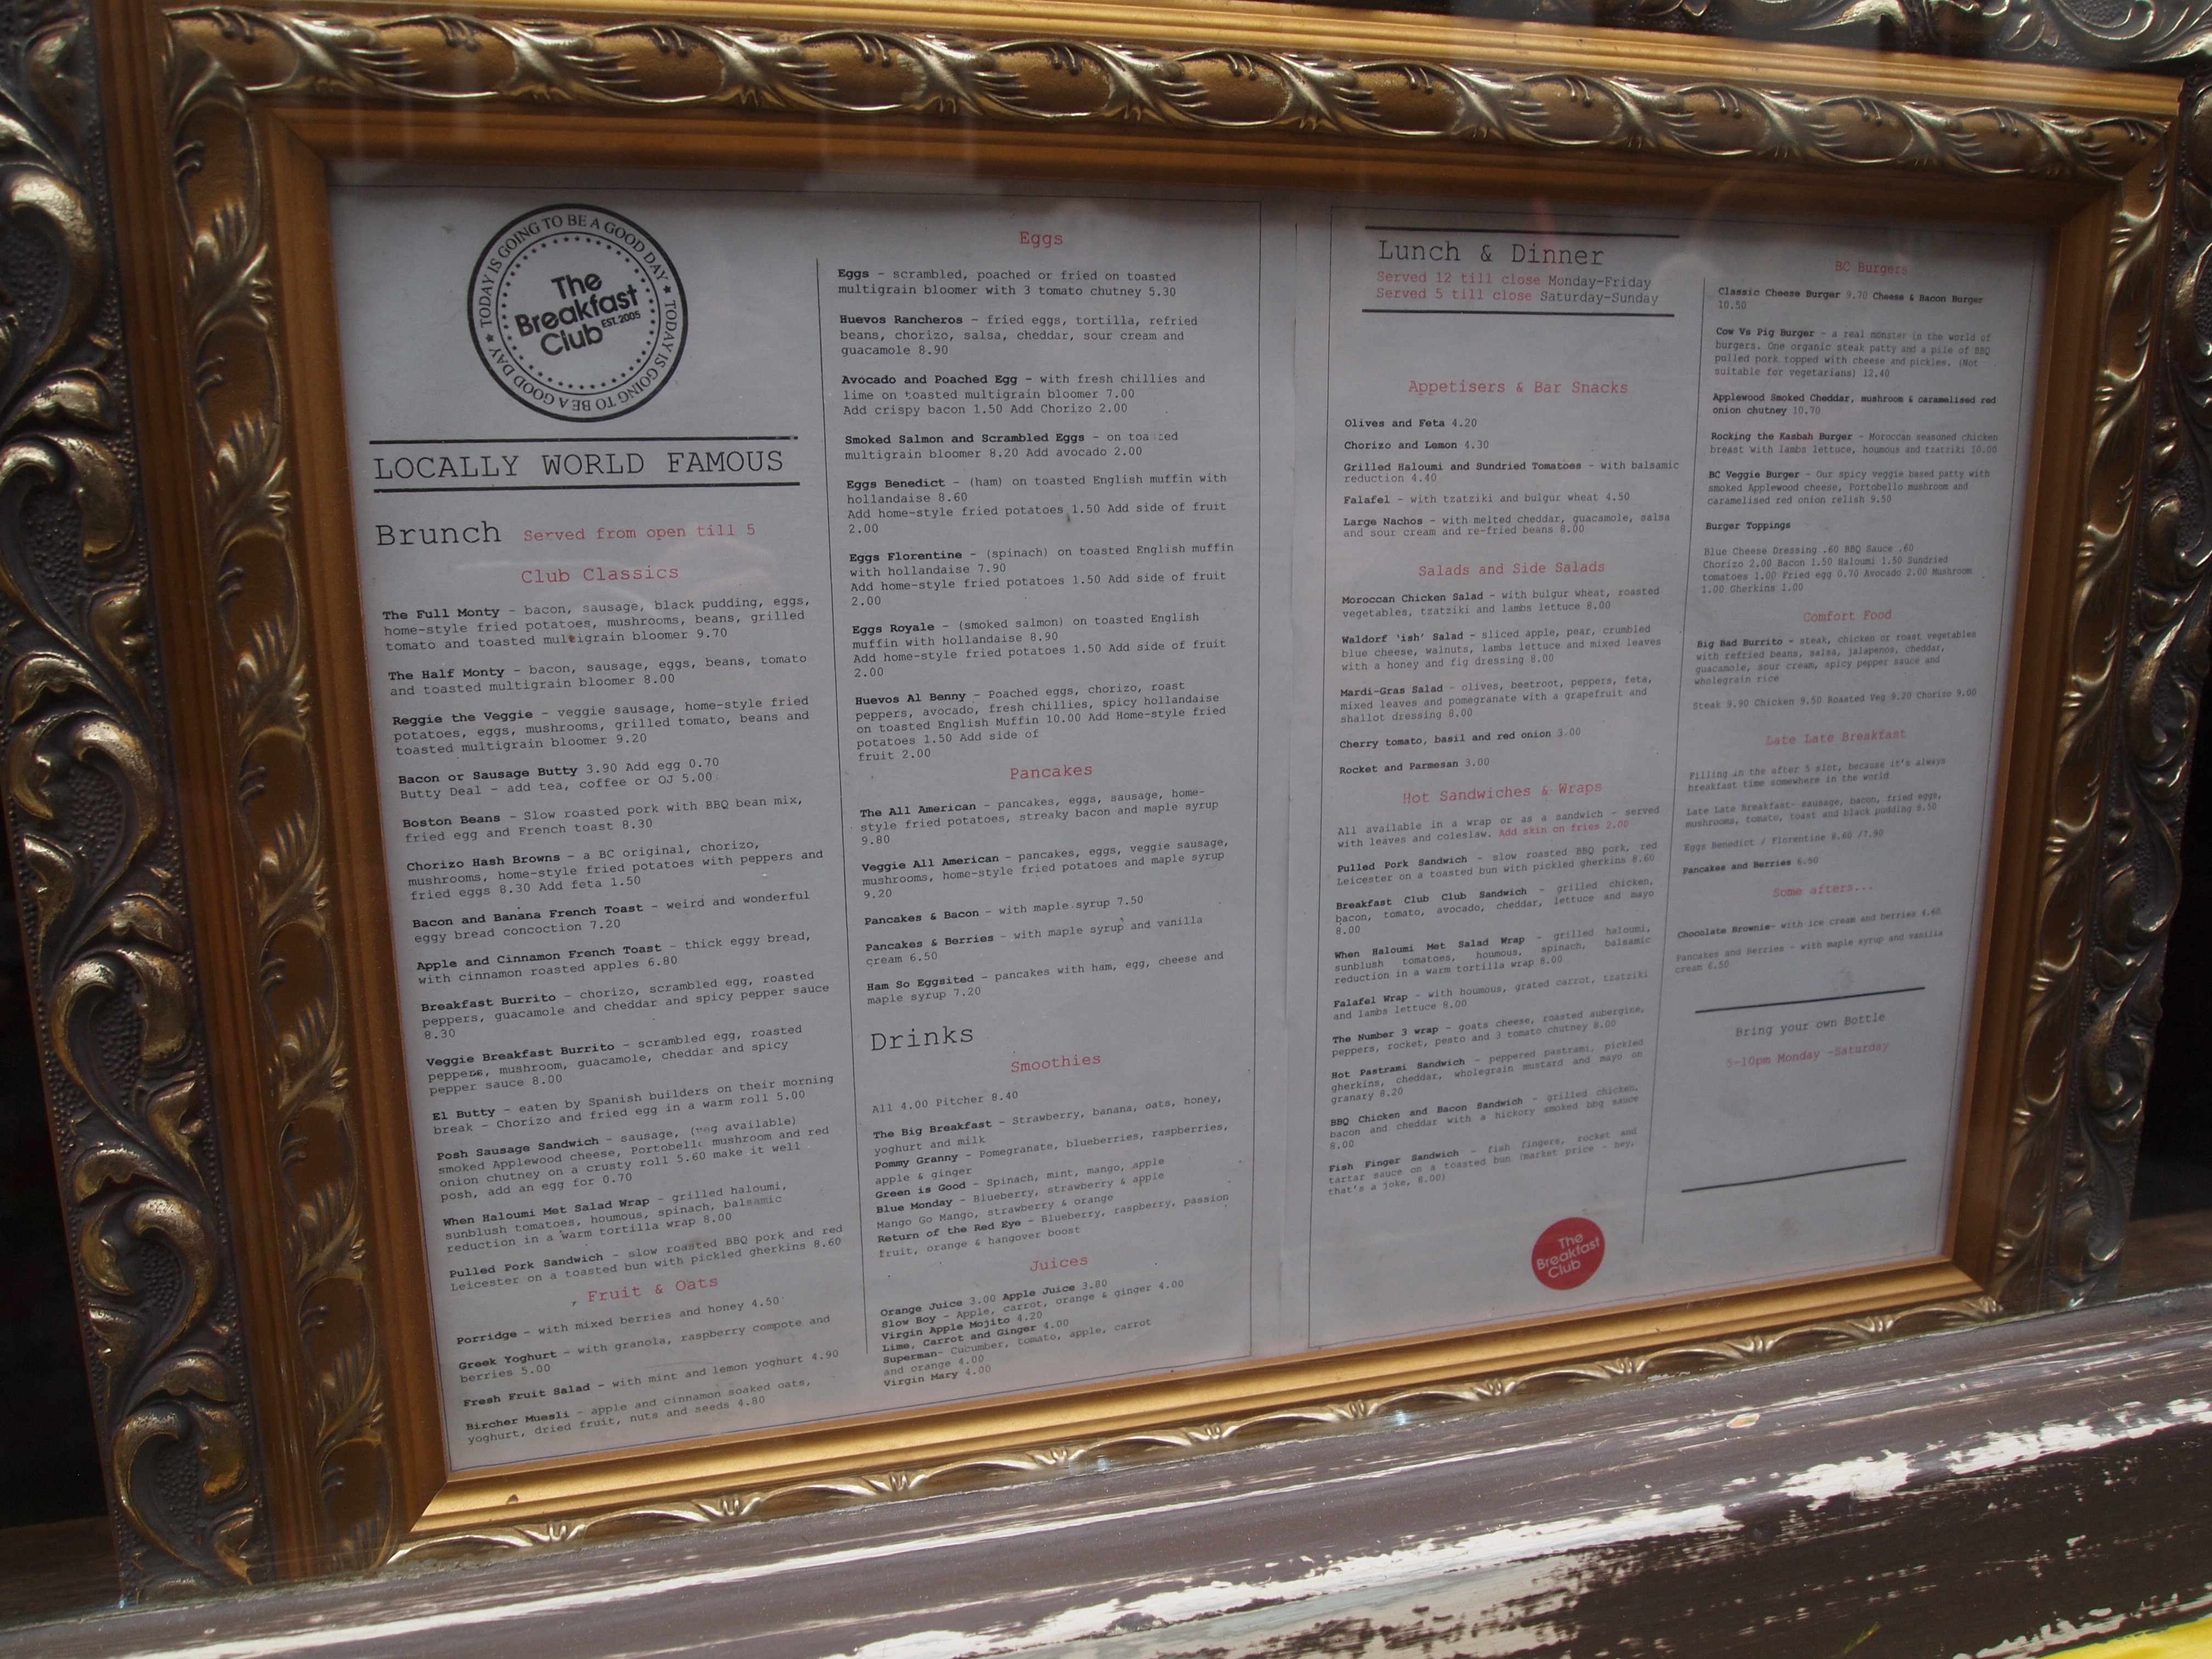 TODAY IS GOING TO BE A GOOD DAY ★ TODAY IS GOING TO BE A GOOD DAY ★
The
Breakfast
Club EST.2005
LOCALLY WORLD FAMOUS
Brunch Served from open till 5
Club Classics
The Full Monty - bacon, sausage, black pudding, eggs,
home-style fried potatoes, mushrooms, beans, grilled
tomato and toasted multigrain bloomer 9.70
The Half Monty - bacon, sausage, eggs, beans, tomato
and toasted multigrain bloomer 8.00
Reggie the Veggie - veggie sausage, home-style fried
potatoes, eggs, mushrooms, grilled tomato, beans and
toasted multigrain bloomer 9.20
Bacon or Sausage Butty 3.90 Add egg 0.70
Butty Deal - add tea, coffee or OJ 5.00
Boston Beans - Slow roasted pork with BBQ bean mix,
fried egg and French toast 8.30
Chorizo Hash Browns - a BC original, chorizo,
mushrooms, home-style fried potatoes with peppers and
fried eggs 8.30 Add feta 1.50
Bacon and Banana French Toast - weird and wonderful
eggy bread concoction 7.20
Apple and Cinnamon French Toast - thick eggy bread,
with cinnamon roasted apples 6.80
Breakfast Burrito - chorizo, scrambled egg, roasted
peppers, guacamole and cheddar and spicy pepper sauce
8.30
Veggie Breakfast Burrito - scrambled egg, roasted
peppers, mushroom, guacamole, cheddar and spicy
pepper sauce 8.00
El Butty - eaten by Spanish builders on their morning
break - Chorizo and fried egg in a warm roll 5.00
Posh Sausage Sandwich - sausage, (veg available)
smoked Applewood cheese, Portobello mushroom and red
onion chutney on a crusty roll 5.60 make it well
posh, add an egg for 0.70
When Haloumi Met Salad Wrap - grilled haloumi,
sunblush tomatoes, houmous, spinach, balsamic
reduction in a warm tortilla wrap 8.00
Pulled Pork Sandwich - slow roasted BBQ pork and red
Leicester on a toasted bun with pickled gherkins 8.60
Fruit & Oats
Porridge - with mixed berries and honey 4.50
Greek Yoghurt - with granola, raspberry compote and
berries 5.00
Fresh Fruit Salad - with mint and lemon yoghurt 4.90
Bircher Muesli - apple and cinnamon soaked oats,
yoghurt, dried fruit, nuts and seeds 4.80
Eggs
Eggs - scrambled, poached or fried on toasted
multigrain bloomer with 3 tomato chutney 5.30
Huevos Rancheros - fried eggs, tortilla, refried
beans, chorizo, salsa, cheddar, sour cream and
guacamole 8.90
Avocado and Poached Egg - with fresh chillies and
lime on toasted multigrain bloomer 7.00
Add crispy bacon 1.50 Add Chorizo 2.00
Smoked Salmon and Scrambled Eggs - on toasted
multigrain bloomer 8.20 Add avocado 2.00
Eggs Benedict - (ham) on toasted English muffin with
hollandaise 8.60
Add home-style fried potatoes 1.50 Add side of fruit
2.00
Eggs Florentine - (spinach) on toasted English muffin
with hollandaise 7.90
Add home-style fried potatoes 1.50 Add side of fruit
2.00
Eggs Royale - (smoked salmon) on toasted English
muffin with hollandaise 8.90
Add home-style fried potatoes 1.50 Add side of fruit
2.00
Huevos Al Benny - Poached eggs, chorizo, roast
peppers, avocado, fresh chillies, spicy hollandaise
on toasted English Muffin 10.00 Add Home-style fried
potatoes 1.50 Add side of
fruit 2.00
Pancakes
The All American - pancakes, eggs, sausage, home-
style fried potatoes, streaky bacon and maple syrup
9.80
Veggie All American - pancakes, eggs, veggie sausage,
mushrooms, home-style fried potatoes and maple syrup
9.20
Pancakes & Bacon - with maple syrup 7.50
Pancakes & Berries - with maple syrup and vanilla
cream 6.50
Ham So Eggsited - pancakes with ham, egg, cheese and
maple syrup 7.20
Drinks
Smoothies
All 4.00 Pitcher 8.40
The Big Breakfast - Strawberry, banana, oats, honey,
yoghurt and milk
Pommy Granny - Pomegranate, blueberries, raspberries,
apple & ginger
Green is Good - Spinach, mint, mango, apple
Blue Monday - Blueberry, strawberry & apple
Mango Go Mango, strawberry & orange
Return of the Red Eye - Blueberry, raspberry, passion
fruit, orange & hangover boost
Juices
Orange Juice 3.00 Apple Juice 3.80
Slow Boy - Apple, carrot, orange & ginger 4.00
Virgin Apple Mojito 4.20
Lime, Carrot and Ginger 4.00
Superman- Cucumber, tomato, apple, carrot
and orange 4.00
Virgin Mary 4.00
Lunch & Dinner
Served 12 till close Monday-Friday
Served 5 till close Saturday-Sunday
Appetisers & Bar Snacks
Olives and Feta 4.20
Chorizo and Lemon 4.30
Grilled Haloumi and Sundried Tomatoes - with balsamic
reduction 4.40
Falafel - with tzatziki and bulgur wheat 4.50
Large Nachos - with melted cheddar, guacamole, salsa
and sour cream and re-fried beans 8.00
Salads and Side Salads
Moroccan Chicken Salad - with bulgur wheat, roasted
vegetables, tzatziki and lambs lettuce 8.00
Waldorf 'ish' Salad - sliced apple, pear, crumbled
blue cheese, walnuts, lambs lettuce and mixed leaves
with a honey and fig dressing 8.00
Mardi-Gras Salad - olives, beetroot, peppers, feta,
mixed leaves and pomegranate with a grapefruit and
shallot dressing 8.00
Cherry tomato, basil and red onion 3.00
Rocket and Parmesan 3.00
Hot Sandwiches & Wraps
All available in a wrap or as a sandwich - served
with leaves and coleslaw. Add skin on fries 2.00
Pulled Pork Sandwich - slow roasted BBQ pork, red
Leicester on a toasted bun with pickled gherkins 8.60
Breakfast Club Club Sandwich - grilled chicken,
bacon, tomato, avocado, cheddar, lettuce and mayo
8.00
When Haloumi Met Salad Wrap - grilled haloumi,
sunblush tomatoes, houmous, spinach, balsamic
reduction in a warm tortilla wrap 8.00
Falafel Wrap - with houmous, grated carrot, tzatziki
and lambs lettuce 8.00
The Number 3 wrap - goats cheese, roasted aubergine,
peppers, rocket, pesto and 3 tomato chutney 8.00
Hot Pastrami Sandwich - peppered pastrami, pickled
gherkins, cheddar, wholegrain mustard and mayo on
granary 8.20
BBQ Chicken and Bacon Sandwich - grilled chicken,
bacon and cheddar with a hickory smoked bbq sauce
8.00
Fish Finger Sandwich - fish fingers, rocket and
tartar sauce on a toasted bun (market price - hey,
that's a joke, 8.00)
The
Breakfast
Club
BC Burgers
Classic Cheese Burger 9.70 Cheese & Bacon Burger
10.50
Cow Vs Pig Burger - a real monster in the world of
burgers. One organic steak patty and a pile of BBQ
pulled pork topped with cheese and pickles. (Not
suitable for vegetarians) 12.40
Applewood Smoked Cheddar, mushroom & caramelised red
onion chutney 10.70
Rocking the Kasbah Burger - Moroccan seasoned chicken
breast with lambs lettuce, houmous and tzatziki 10.00
BC Veggie Burger - Our spicy veggie based patty with
smoked Applewood cheese, Portobello mushroom and
caramelised red onion relish 9.50
Burger Toppings
Blue Cheese Dressing .60 BBQ Sauce .60
Chorizo 2.00 Bacon 1.50 Haloumi 1.50 Sundried
tomatoes 1.00 Fried egg 0.70 Avocado 2.00 Mushroom
1.00 Gherkins 1.00
Comfort Food
Big Bad Burrito - steak, chicken or roast vegetables
with refried beans, salsa, jalapenos, cheddar,
guacamole, sour cream, spicy pepper sauce and
wholegrain rice
Steak 9.90 Chicken 9.50 Roasted Veg 9.20 Chorizo 9.00
Late Late Breakfast
Filling in the after 5 slot, because it's always
breakfast time somewhere in the world
Late Late Breakfast- sausage, bacon, fried eggs,
mushrooms, tomato, toast and black pudding 8.50
Eggs Benedict / Florentine 8.60 /7.90
Pancakes and Berries 6.50
Some afters...
Chocolate Brownie- with ice cream and berries 4.60
Pancakes and Berries - with maple syrup and vanilla
cream 6.50
Bring your own Bottle
5-10pm Monday -Saturday